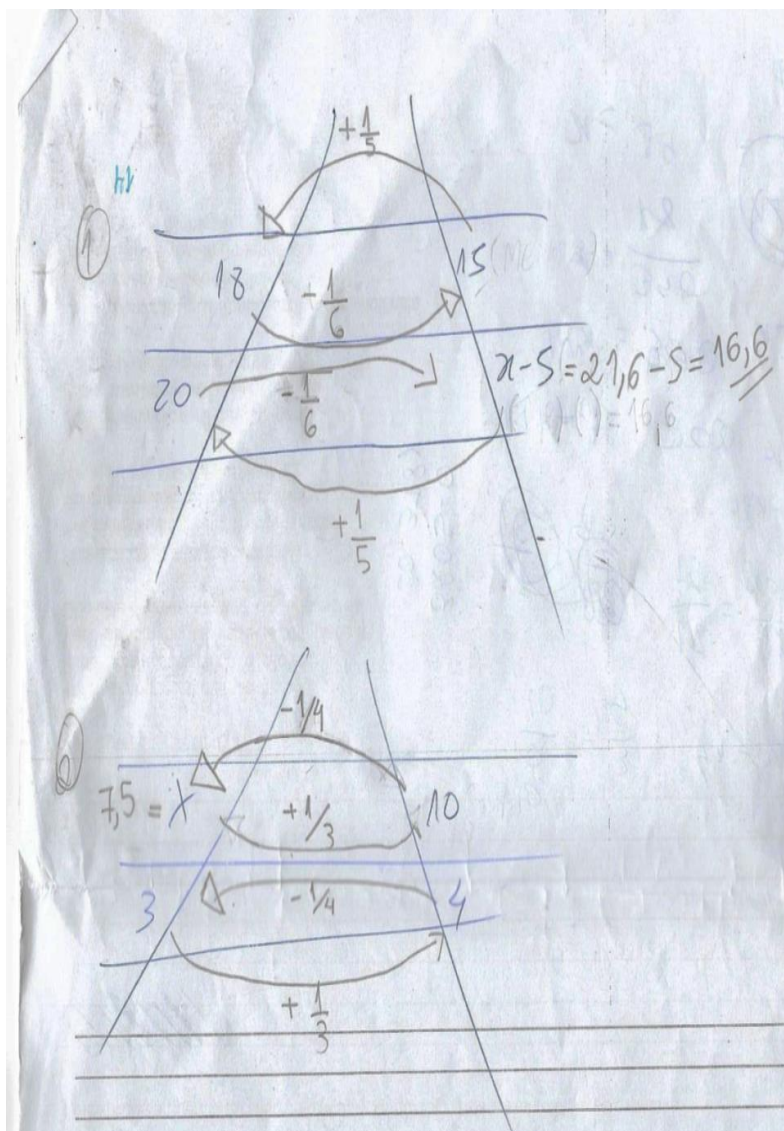 +1/5
14
1
18
15
-1/6
20
-1/6
x-5=21,6-5=16,6
+1/5
2
-1/4
7,5 = x
+1/3
10
3
-1/4
4
+1/3